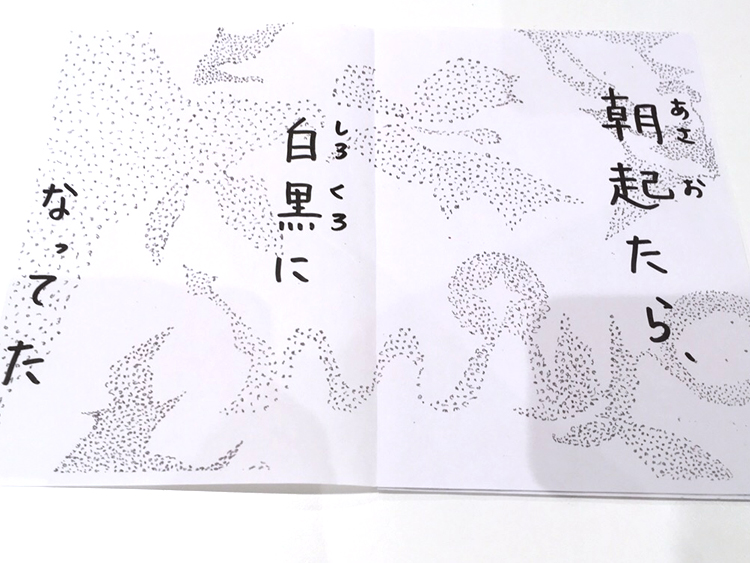 朝起たら、
あさ お
白黒に
しろ くろ
なってた